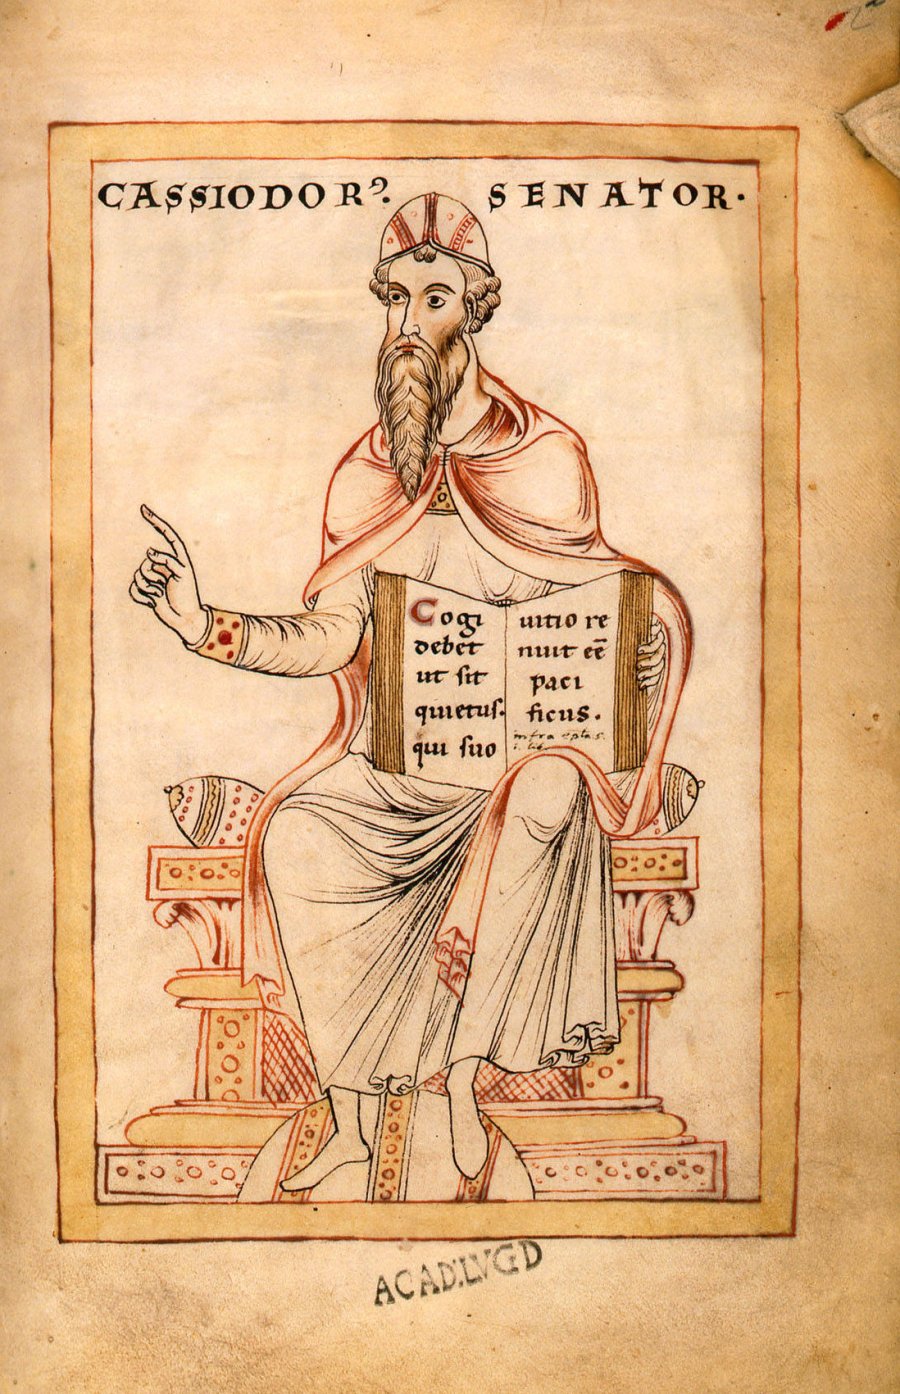 CASSIODORꝰ. SENATOR.
Cogi
debet
ut sit
quietus.
qui suo
uitio re
nuit eē
paci
ficus.
infra eplas
ACAD. LVGD